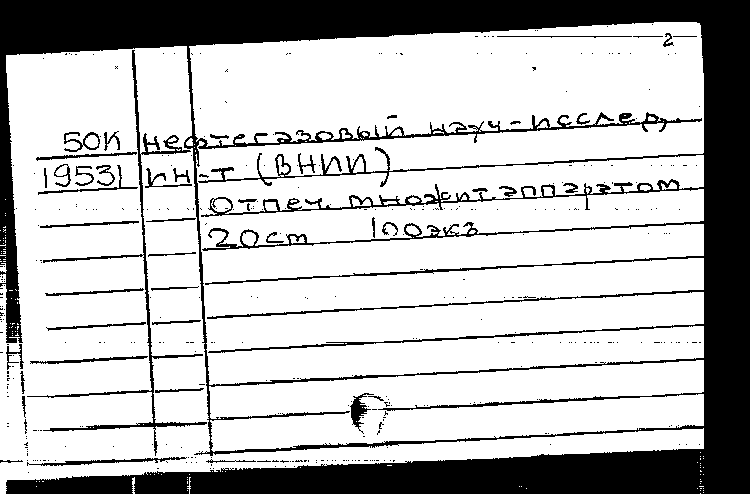 2
50К нефтегазовый науч-исслед.
19531 ин-т (ВНИИ)
Отпеч. множит. аппаратом
20 ст 100 экз